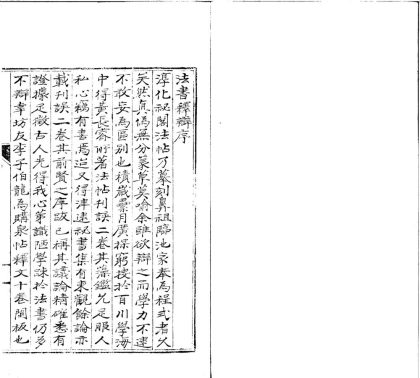 法書釋辯序
淳化秘閣法帖乃摹刻鼻祖臨池家奉為程式者久
矣然真偽無分篆草莫喻余雖欲辯之而學力不逮
不敢妄為區別也積歲累月廣探窮搜於百川學海
中得黃長睿所著法帖刊誤二卷其藻鑑允足服人
私心竊有書焉迨又得津逮秘書集有東觀餘論亦
載刊誤二卷其前賢之序跋已稱其議論精確悉有
證據足徵古人先得我心第識陋學疎於法書仍多
不辯幸坊友李子伯龍為購泉帖釋文十卷閣板也